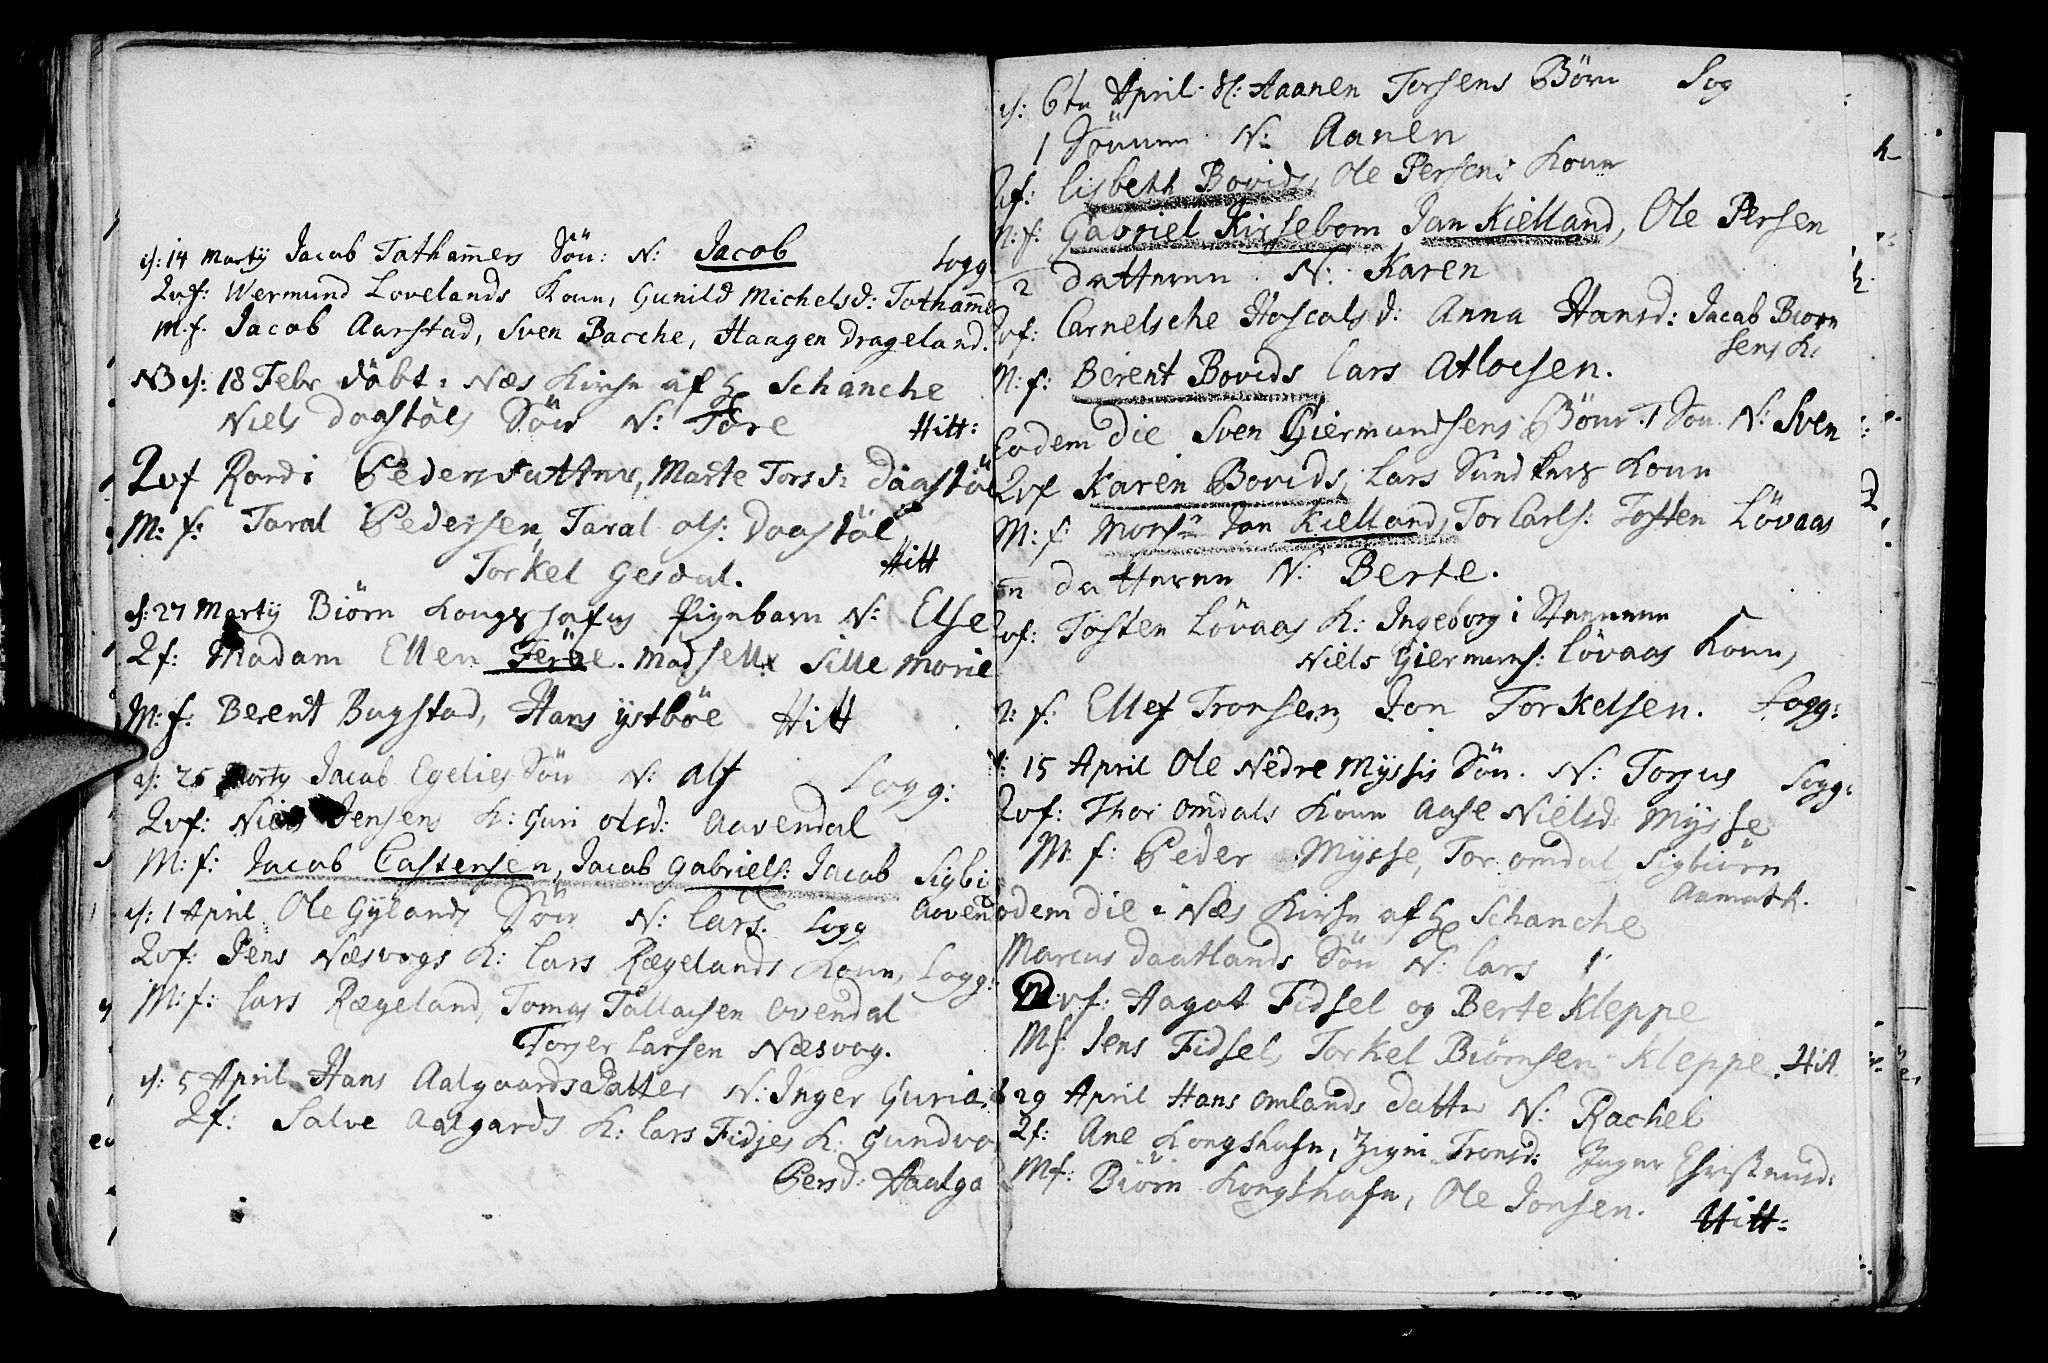 d: 14 Martij Jacob Tathamers Sön: N: Jacob Sogg:
Qvf: Wermund Lovelands Kone, Gunild Michelsd: Tathamme
M.f. Jacob Aarstad, Sven Bacche, Haagen Drageland.
NB d: 18 Febr döbt i Næs Kirke af H Schanche
Niels Daastöls Sön N: Tore Hitt:
Qvf Randi Pedersdatter, Marte Torsd: Daastöl
M: f: Taral Pedersen, Taral ols: Daastöl
Torkel Gesdal. Hitt
d: 27 Martij Biörn Kongshafns Pigebarn N: Else
Qf: Madam Ellen Feröe. Madselle Sille Marie
M: f: Berent Bugstad, Hans ystböe Hitt
d: 25 Martij Jacob Egelies Sön N: Alf Sogg:
Qvf: Niels Jensens K: Guri olsd: Aavendal
M: f: Jacob Castensen, Jacob Gabriels: Jacob Sigbi
Aavend
d: 1 April Ole Gylands Sön N: Lars. Sogg
Qvf: Jens Næsvogs K: Lars Rægelands Kone, Sogg:
M: f: Lars Rægeland, Tomas Tallachsen Ovendal
Torjer Larsen Næsvog.
d: 5 April Hans Aalgaards Datter N: Inger Guria
Qf: Salve Aalgards K: Lars Fidjes K: Gundvo
Persd: Aaalga
d: 6te April Sl: Haanen Torsens Börn Sog
1 Sönnen N: Aanen
Qvf: Lisbeth Bovids, Ole Persens Kone
M: f: Gabriel Kirsebom Jan Kielland, Ole Persen
2 datteren N: Karen
Qvf: Carnelsche Hascalsd: Anna Hansd: Jacob Biorn
sens K:
M: f: Berent Bovids Lars Atloesen.
Eodem die Sven Giermundsens Börn. 1 Sön N: Sven
Qvf Karen Bovids, Lars Kone
M: f: Monsr Jan Kielland, Tor Carls: Tosten Lövaas
2 datteren N: Berte.
Qvf: Tosten Lövaas K: Ingeborg i
Niels Giermuns: Lövaas Kone,
M: f: Ellef Tronsen, Jon Torkelsen. Sogg:
d: 15 April Ole Nedre Myssis Sön. N: Torjus Sogg:
Qvf: Thor Omdals Kone Aase Nielsd: Mysse
M: f: Peder Mysse, Tor omdal, Sigbiörn
Aamotk.
Eodem die i Næs Kirke af H Schanche
Marcus Daatlands Sön N: Lars
vf: Aagot Fidsel og Berte Kleppe
Mf: Jens Fidsel, Torkel Biörnsen Kleppe. Hitt
d 29 April Hans Omlands datter N: Rachel
Qf: Ane Kongshafn, Tronsd: Inger Christensd:
Mf: Biörn Kongshafn, Ole Jonsen. Hitt: